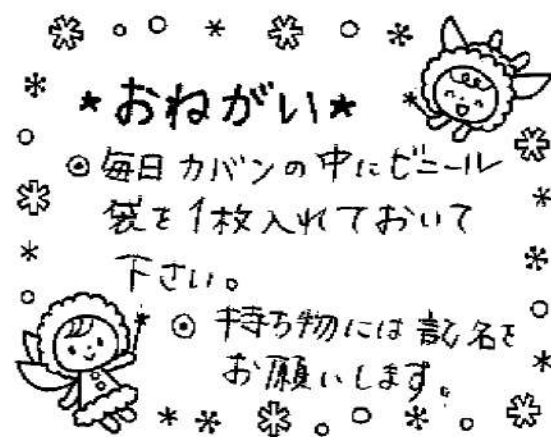 ★おねがい★
◎毎日カバンの中にビニール
袋を1枚入れておいて
下さい。
◎持ち物には記名を
お願いします。